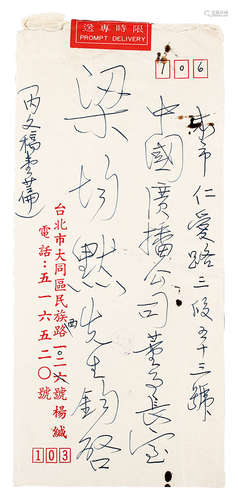 限時專送
PROMPT DELIVERY
106
本市仁愛路三段五十三號
中國廣播公司董事長室
梁均默先生鈞啓
(內文稿壹篇)
台北市大同區民族西路一〇二六號楊緘
電話：五一六五二〇號
103